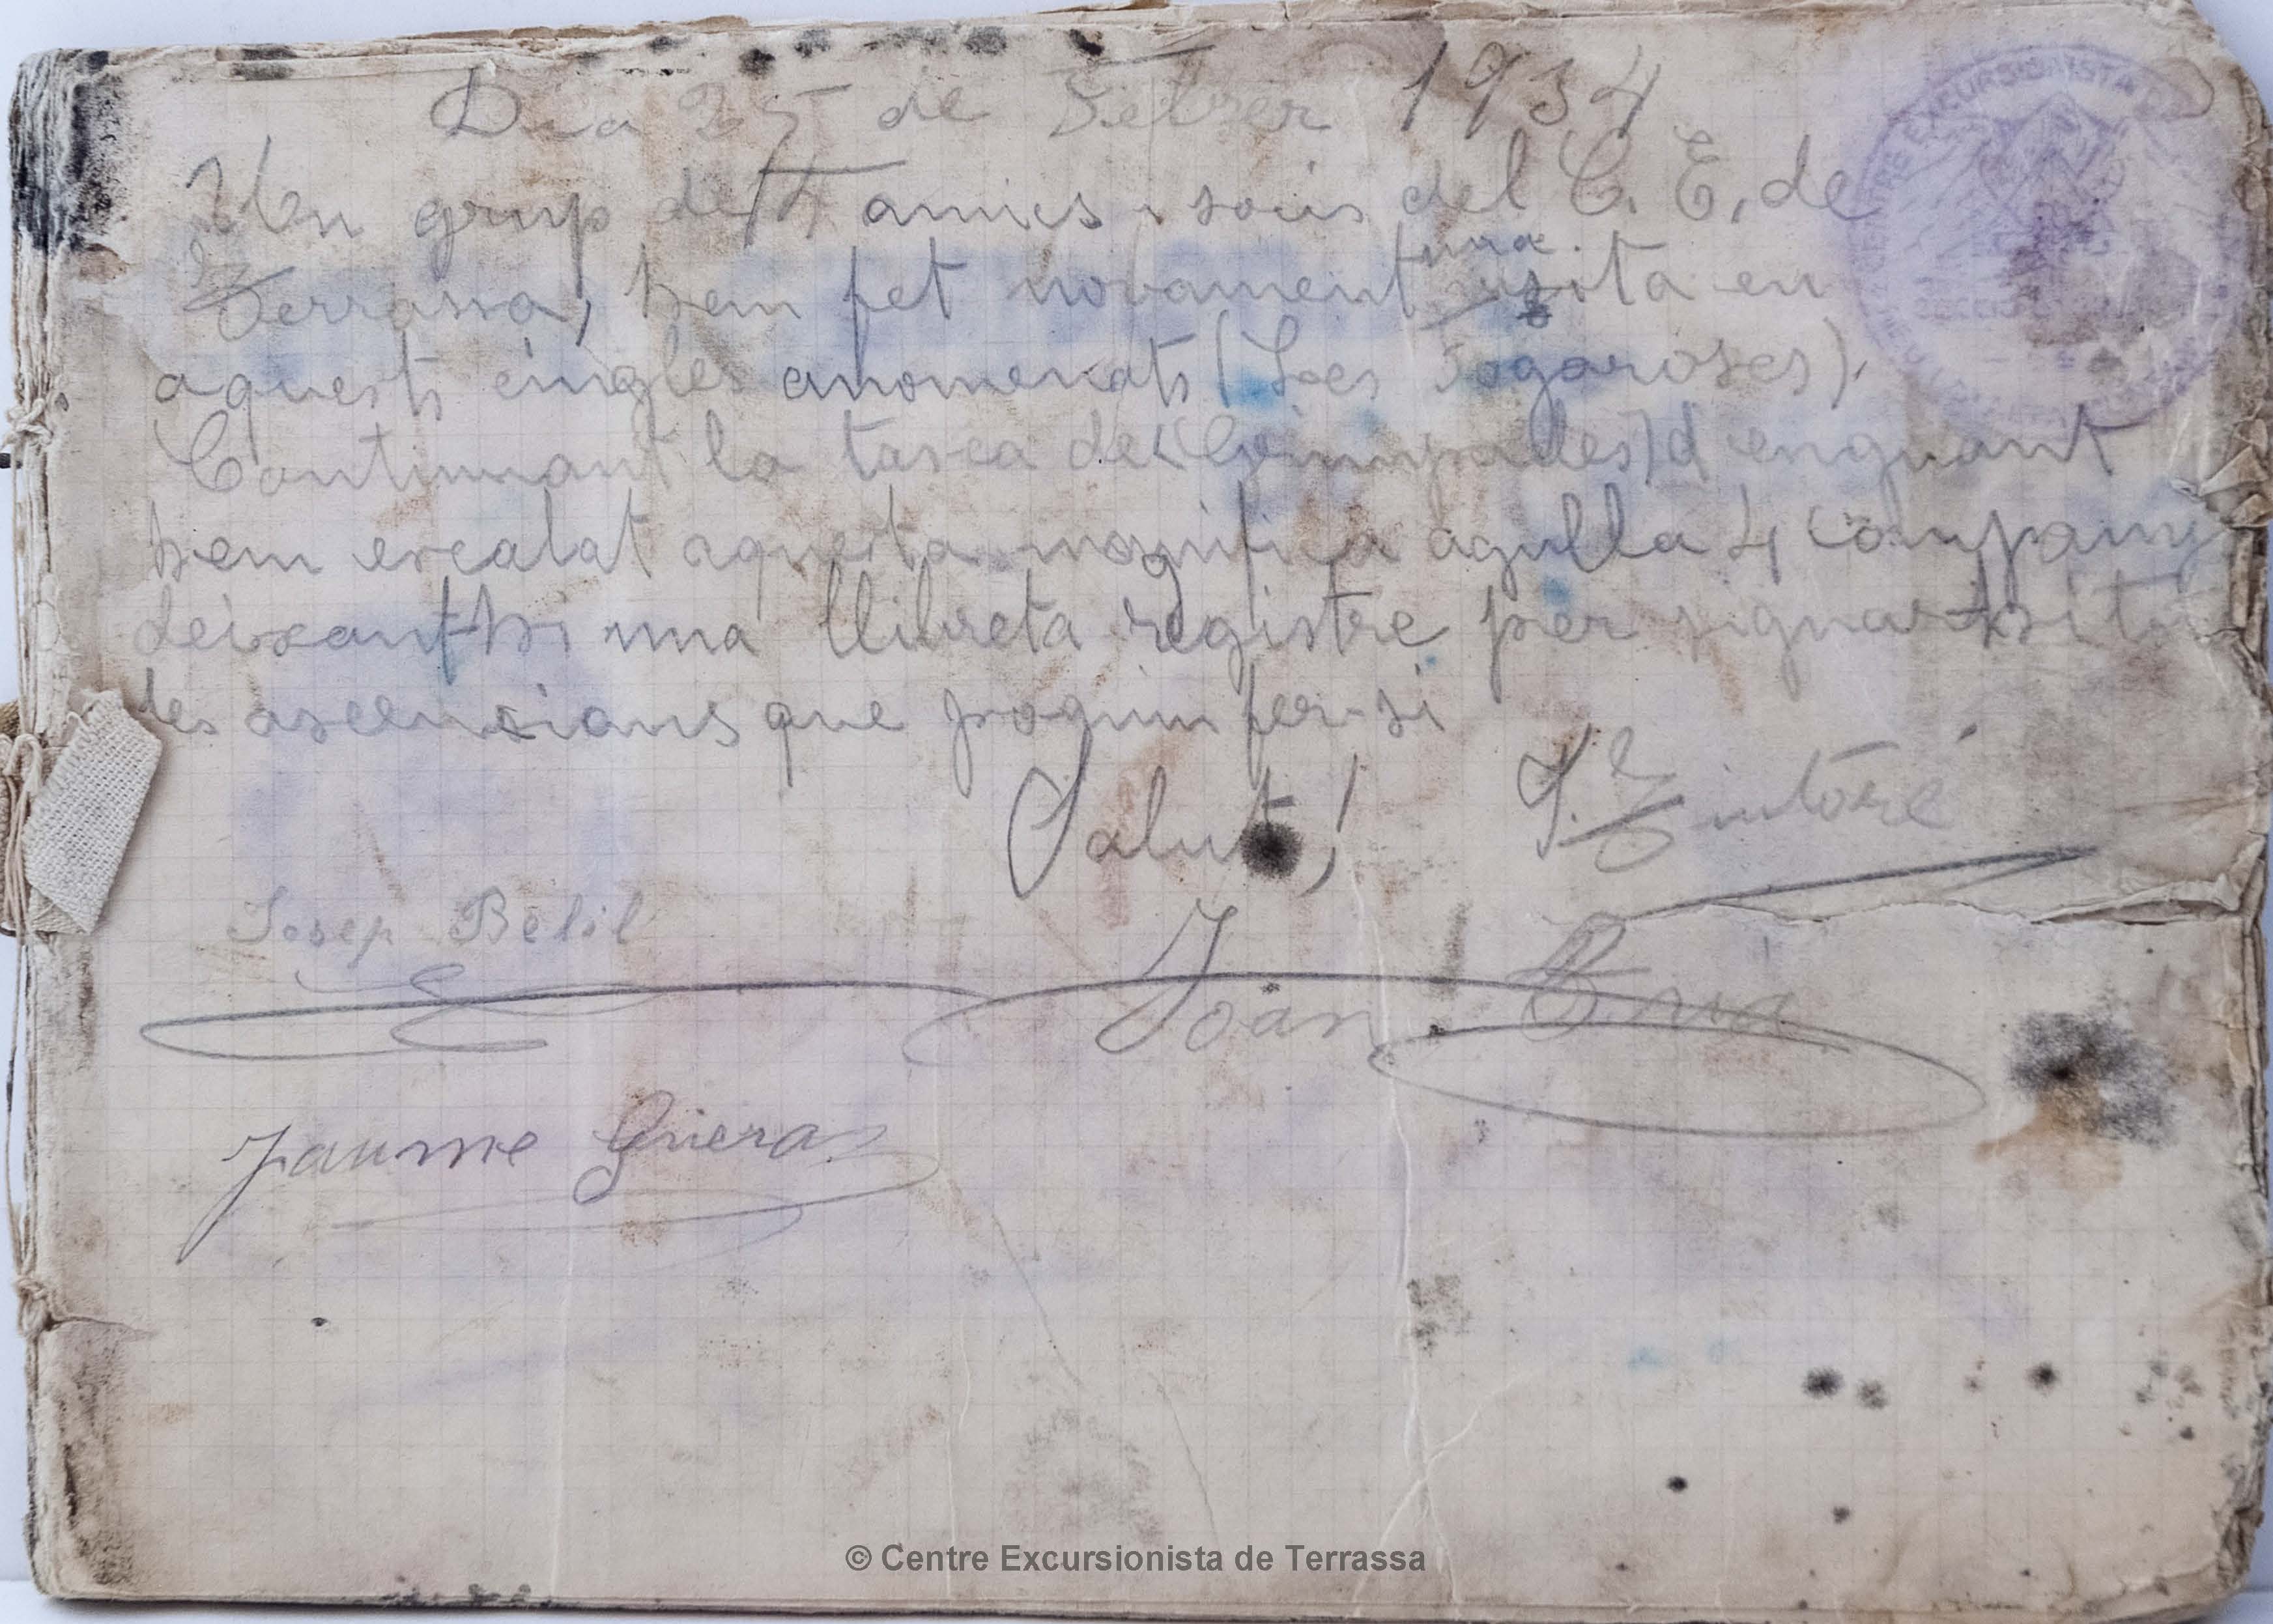 Dia 25 de Febrer 1934
Un grup de 14 amics socis del C. E. de
Terrassa, hem fet novament una visita en
aquests cingles anomenats (Les Fogaroses).
Continuant la tasca de (Grimpades) d'enguant
hem escalat aquesta magnifica agulla 4 companys
deixant-hi una llibreta registre per signar-hsi
les ascensions que poguin fer-si
Salut!
Josep Belil
Joan
Jaume Gueras
CENTRE EXCURSIONISTA
© Centre Excursionista de Terrassa